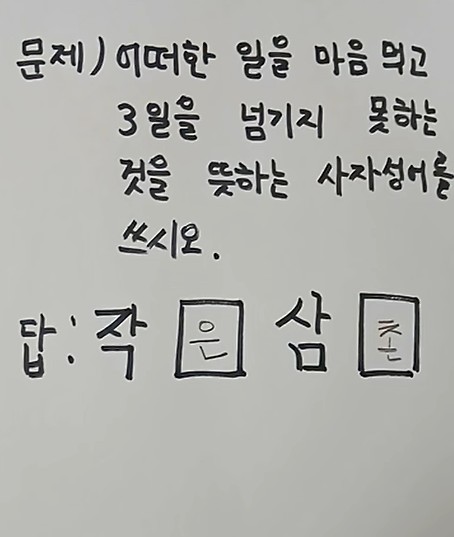 문제) 어떠한 일을 마음 먹고
3일을 넘기지 못하는
것을 뜻하는 사자성어를
쓰시오.
답: 작 은 삼 촌